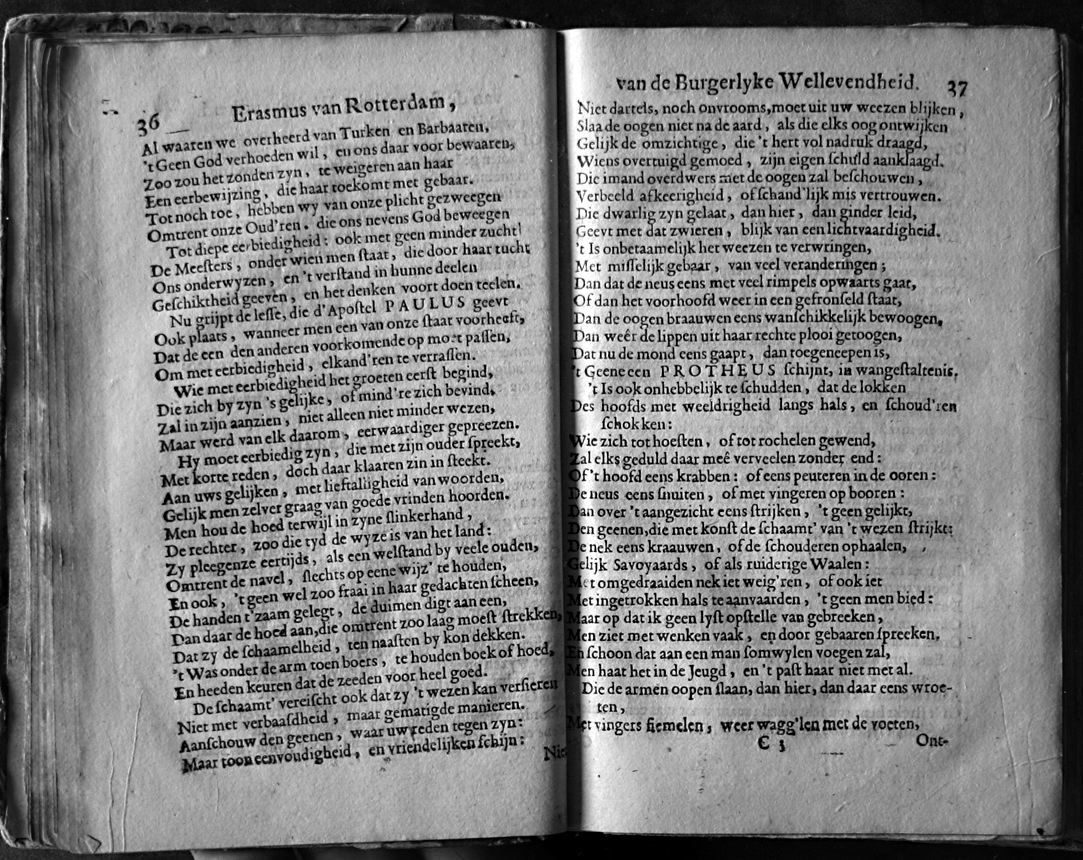 36 Erasmus van Rotterdam,
Al waaren we overheerd van Turken en Barbaaren,
't Geen God verhoeden wil, en ons daar voor bewaaren,
Zoo zou het zonden zyn, te weigeren aan haar
Een eerbewijzing, die haar toekomt met gebaar.
Tot noch toe, hebben wy van onze plicht gezweegen
Omtrent onze Oud'ren, die ons nevens God beweegen
Tot diepe eerbiedigheid: ook met geen minder zucht
De Meesters, onder wien men staat, die door haar tucht
Ons onderwyzen, en 't verstand in hunne deelen
Geschiktheid geeven, en het denken voort doen teelen.
Nu grijpt de lesse, die d'Apostel PAULUS geevt
Ook plaats, wanneer men een van onze staat voorheeft,
Dat de een den anderen voorkomende op moet passen,
Om met eerbiedigheid, elkand'ren te verrassen.
Wie met eerbiedigheid het groeten eerst begind,
Die zich by zyn 's gelijke, of mind're zich bevind,
Zal in zijn aanzien, niet alleen niet minder wezen,
Maar werd van elk daarom, eerwaardiger gepreezen.
Hy moet eerbiedig zyn, die met zijn ouder spreekt,
Met korte reden, doch daar klaaren zin in steekt.
Aan uws gelijken, met lieftalligheid van woorden,
Gelijk men zelver graag van goede vrinden hoorden.
Men hou de hoed terwijl in zyne slinkerhand,
De rechter, zoo die tyd de wyze is van het land:
Zy pleegenze eertijds, als een welstand by veele ouden,
Omtrent de navel, slechts op eene wijz' te houden,
En ook, 't geen wel zoo fraai in haar gedachten scheen,
De handen t'zaam gelegt, de duimen digt aan een,
Dan daar de hoed aan, die omtrent zoo laag moest strekken,
Dat zy de schaamelheid, ten naasten by kon dekken.
't Was onder de arm toen boers, te houden boek of hoed,
En heeden keuren dat de zeeden voor heel goed.
De schaamt' vereischt ook dat zy 't wezen kan versieren
Niet met verbaasdheid, maar gematigde manieren.
Aanschouw den geenen, waar uw reden tegen zyn:
Maar toon eenvoudigheid, en vriendelijken schijn:
Nie
van de Burgerlyke Wellevendheid. 37
Niet dartels, noch onvrooms, moet uit uw weezen blijken,
Slaa de oogen niet na de aard, als die elks oog ontwijken
Gelijk de omzichtige, die 't hert vol nadruk draagd,
Wiens overtuigd gemoed, zijn eigen schuld aanklaagd.
Die imand overdwers met de oogen zal beschouwen,
Verbeeld afkeerigheid, of schand'lijk mis vertrouwen.
Die dwarlig zyn gelaat, dan hier, dan ginder leid,
Geevt met dat zwieren, blijk van een lichtvaardigheid.
't Is onbetaamelijk het weezen te verwringen,
Met misselijk gebaar, van veel veranderingen;
Dan dat de neus eens met veel rimpels opwaarts gaat,
Of dan het voorhoofd weer in een gefronseld staat,
Dan de oogen braauwen eens wanschikkelijk bewoogen,
Dan weêr de lippen uit haar rechte plooi getoogen,
Dat nu de mond eens gaapt, dan toegeneepen is,
't Geene een PROTHEUS schijnt, in wangestaltenis.
't Is ook onhebbelijk te schudden, dat de lokken
Des hoofds met weeldrigheid langs hals, en schoud'ren
schokken:
Wie zich tot hoesten, of tot rochelen gewend,
Zal elks geduld daar meê verveelen zonder end:
Of 't hoofd eens krabben: of eens peuteren in de ooren:
De neus eens snuiten, of met vingeren op booren:
Dan over 't aangezicht eens strijken, 't geen gelijkt,
Den geenen, die met konst de schaamt' van 't wezen strijkt:
De nek eens kraauwen, of de schouderen ophaalen,
Gelijk Savoyaards, of als ruiderige Waalen:
Met omgedraaiden nek iet weig'ren, of ook iet
Met ingetrokken hals te aanvaarden, 't geen men bied:
Maar op dat ik geen lyst opstelle van gebreeken,
Men ziet met wenken vaak, en door gebaaren spreeken,
En schoon dat aan een man somwylen voegen zal,
Men haar het in de Jeugd, en 't past haar niet met al.
Die de armen oopen slaan, dan hier, dan daar eens wroe-
ten,
Met vingers fiemelen, weer wagg'len met de voeten,
C 3 Ont-